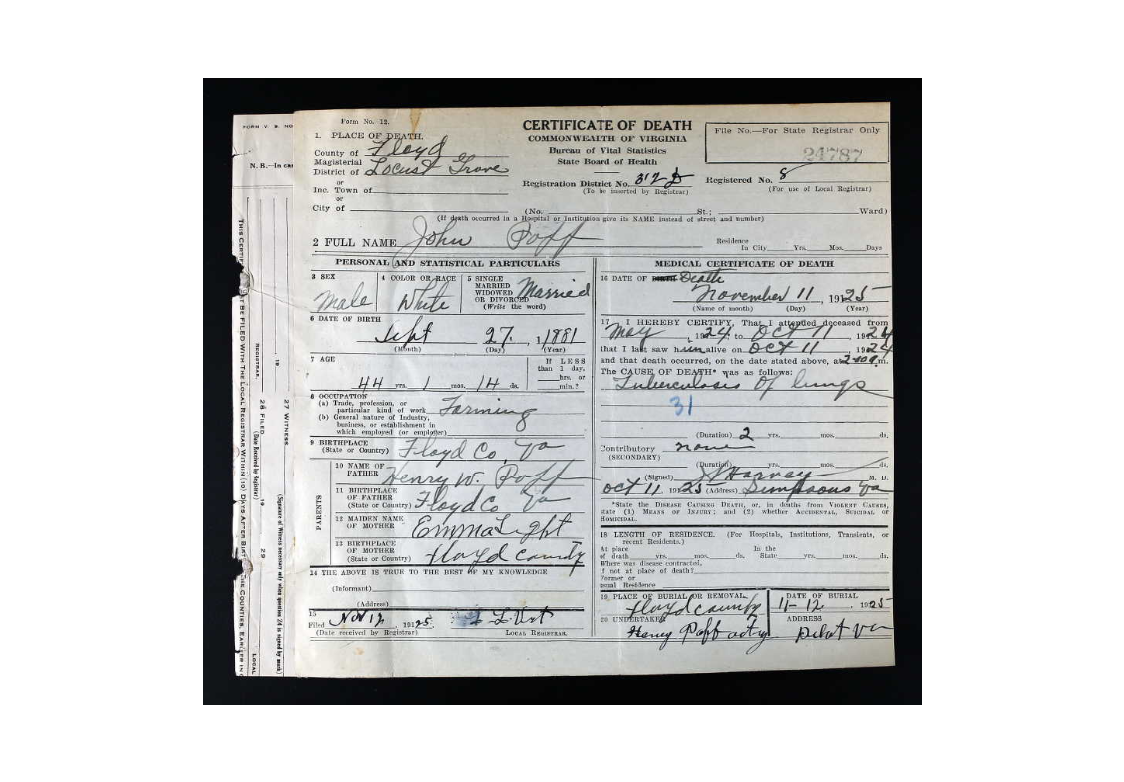 FORM V. S. NO
N. B.—In ca
THIS CERTIF
ST BE FILED WITH THE LOCAL REGISTRAR WITHIN (10) DAYS AFTER BIRT
OR COUNTIES, EARLIER IN C
REGISTRAR.
28 FILED
(Date Received by Registrar)
19
29
27 WITNESS
(Signature of Witness necessary only when question 24 is signed by mark)
LOCAL
Form No. 12.
1. PLACE OF DEATH.
County of Floyd
Magisterial
District of Locust Grove
or
Inc. Town of
or
City of
CERTIFICATE OF DEATH
COMMONWEALTH OF VIRGINIA
Bureau of Vital Statistics
State Board of Health
Registration District No. 312 D
(To be inserted by Registrar)
File No.—For State Registrar Only
24787
Registered No. 8
(For use of Local Registrar)
(No. St.; Ward)
(If death occurred in a Hospital or Institution give its NAME instead of street and number)
2 FULL NAME John Poff
Residence
In City Yrs. Mos. Days
PERSONAL AND STATISTICAL PARTICULARS
3 SEX
Male
4 COLOR OR RACE
White
5 SINGLE
MARRIED
WIDOWED
OR DIVORCED
(Write the word)
Married
6 DATE OF BIRTH
Sept 27, 1881
(Month) (Day) (Year)
7 AGE
44 yrs. 1 mos. 14 ds.
If LESS
than 1 day,
hrs. or
min.?
8 OCCUPATION
(a) Trade, profession, or
particular kind of work Farming
(b) General nature of Industry,
business, or establishment in
which employed (or employer)
9 BIRTHPLACE
(State or Country) Floyd Co, Va
PARENTS
10 NAME OF
FATHER Henry W. Poff
11 BIRTHPLACE
OF FATHER
(State or Country) Floyd Co Va
12 MAIDEN NAME
OF MOTHER Emma Light
13 BIRTHPLACE
OF MOTHER
(State or Country) Floyd County
14 THE ABOVE IS TRUE TO THE BEST OF MY KNOWLEDGE
(Informant)
(Address)
15
Filed Nov 12, 1925
(Date received by Registrar) LOCAL REGISTRAR.
MEDICAL CERTIFICATE OF DEATH
16 DATE OF BIRTH Death
November 11, 1925
(Name of month) (Day) (Year)
17 I HEREBY CERTIFY, That I attended deceased from
May, 1924 to Oct 11, 1924
that I last saw him alive on Oct 11 1924
and that death occurred, on the date stated above, at m.
The CAUSE OF DEATH* was as follows:
Tuberculosis of lungs
31
(Duration) 2 yrs. mos. ds.
Contributory none
(SECONDARY)
(Duration) yrs. mos. ds.
(Signed) Harvey M. D.
Oct 11 1925 (Address) Simpsons Va
*State the DISEASE CAUSING DEATH, or, in deaths from VIOLENT CAUSES,
state (1) MEANS OF INJURY; and (2) whether ACCIDENTAL, SUICIDAL or
HOMICIDAL.
18 LENGTH OF RESIDENCE. (For Hospitals, Institutions, Transients, or
recent Residents.)
At place In the
of death yrs. mos. ds. State yrs. mos. ds.
Where was disease contracted,
if not at place of death?
Former or
usual Residence
19 PLACE OF BURIAL OR REMOVAL
Floyd County
DATE OF BURIAL
11-12, 1925
20 UNDERTAKER
Henry Poff
ADDRESS
Pilot Va